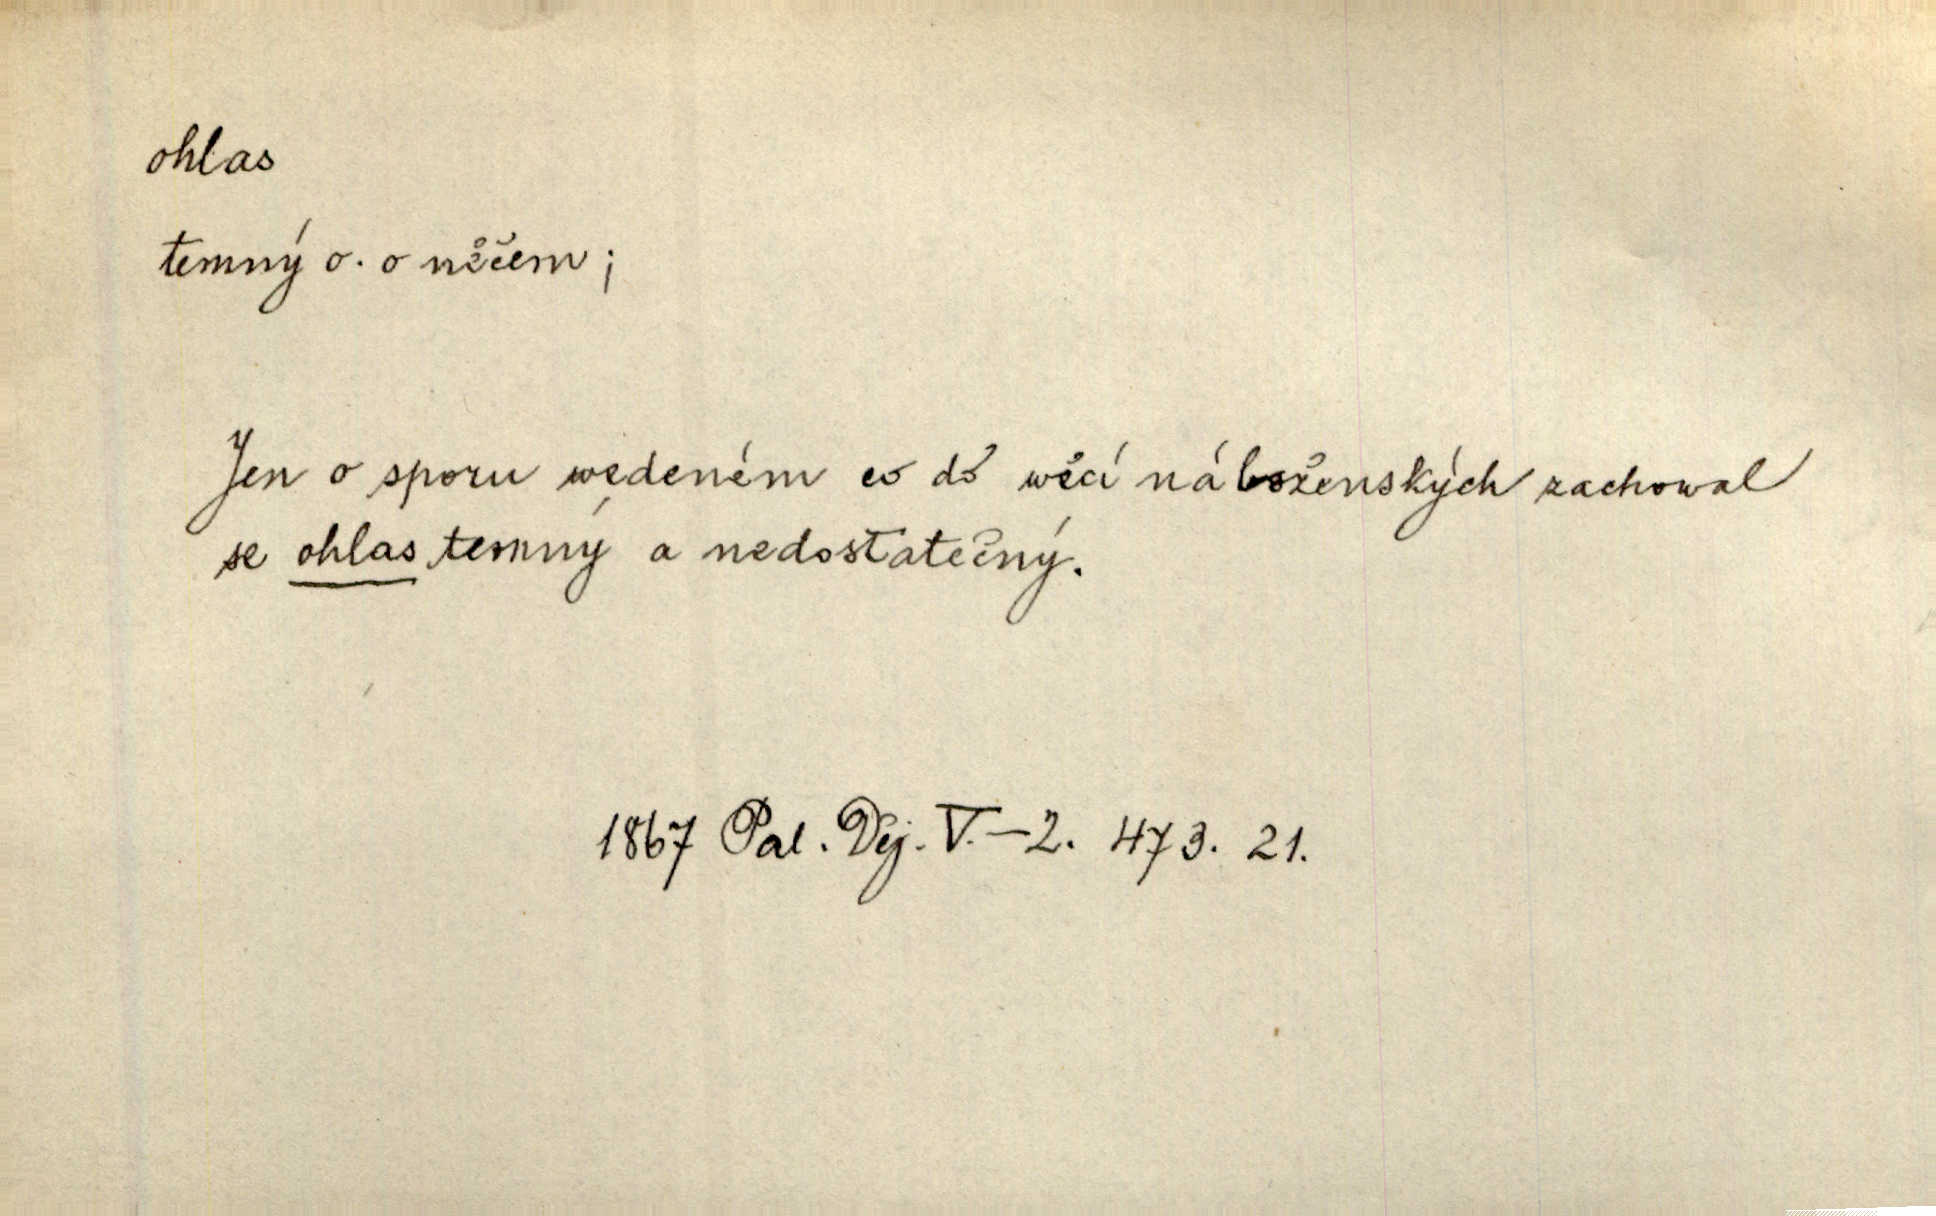 ohlas
temný o. o něčem;
Jen o sporu wedeném co do wěcí náboženských zachowal
se ohlas temný a nedostatečný.
1867 Pal. Děj. V.—2. 473. 21.